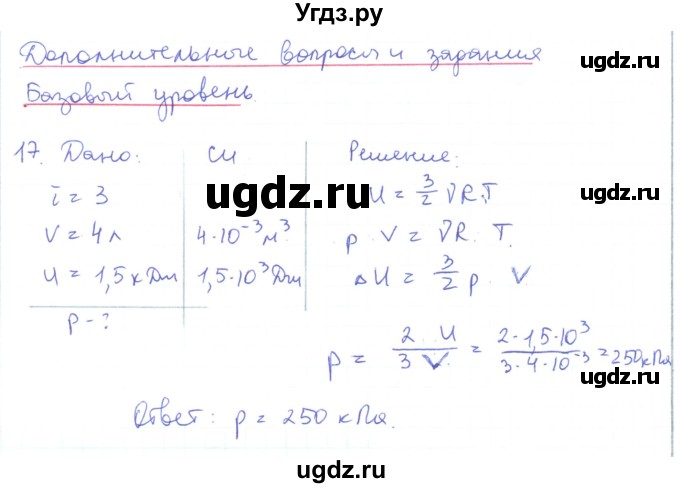 Угдз.ру
Дополнительные вопросы и задания
ugdz.ru
Базовый уровень.
ugdz.ru
17. Дано: СИ Решение:
i = 3 U = 3/2 νRT
ugdz.ru
V = 4 л 4·10⁻³ м³ p V = νR T.
U = 1,5 кДж 1,5·10³ Дж ΔU = 3/2 p V
ugdz.ru
p - ?
p = 2 U / 3 V = 2·1,5·10³ / 3·4·10⁻³ = 250 кПа
ugdz.ru
Ответ: p = 250 кПа.
ugdz.ru
ugdz.ru